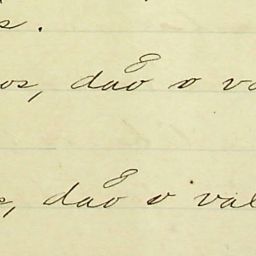 s.
os, dão o va
s, dão o val